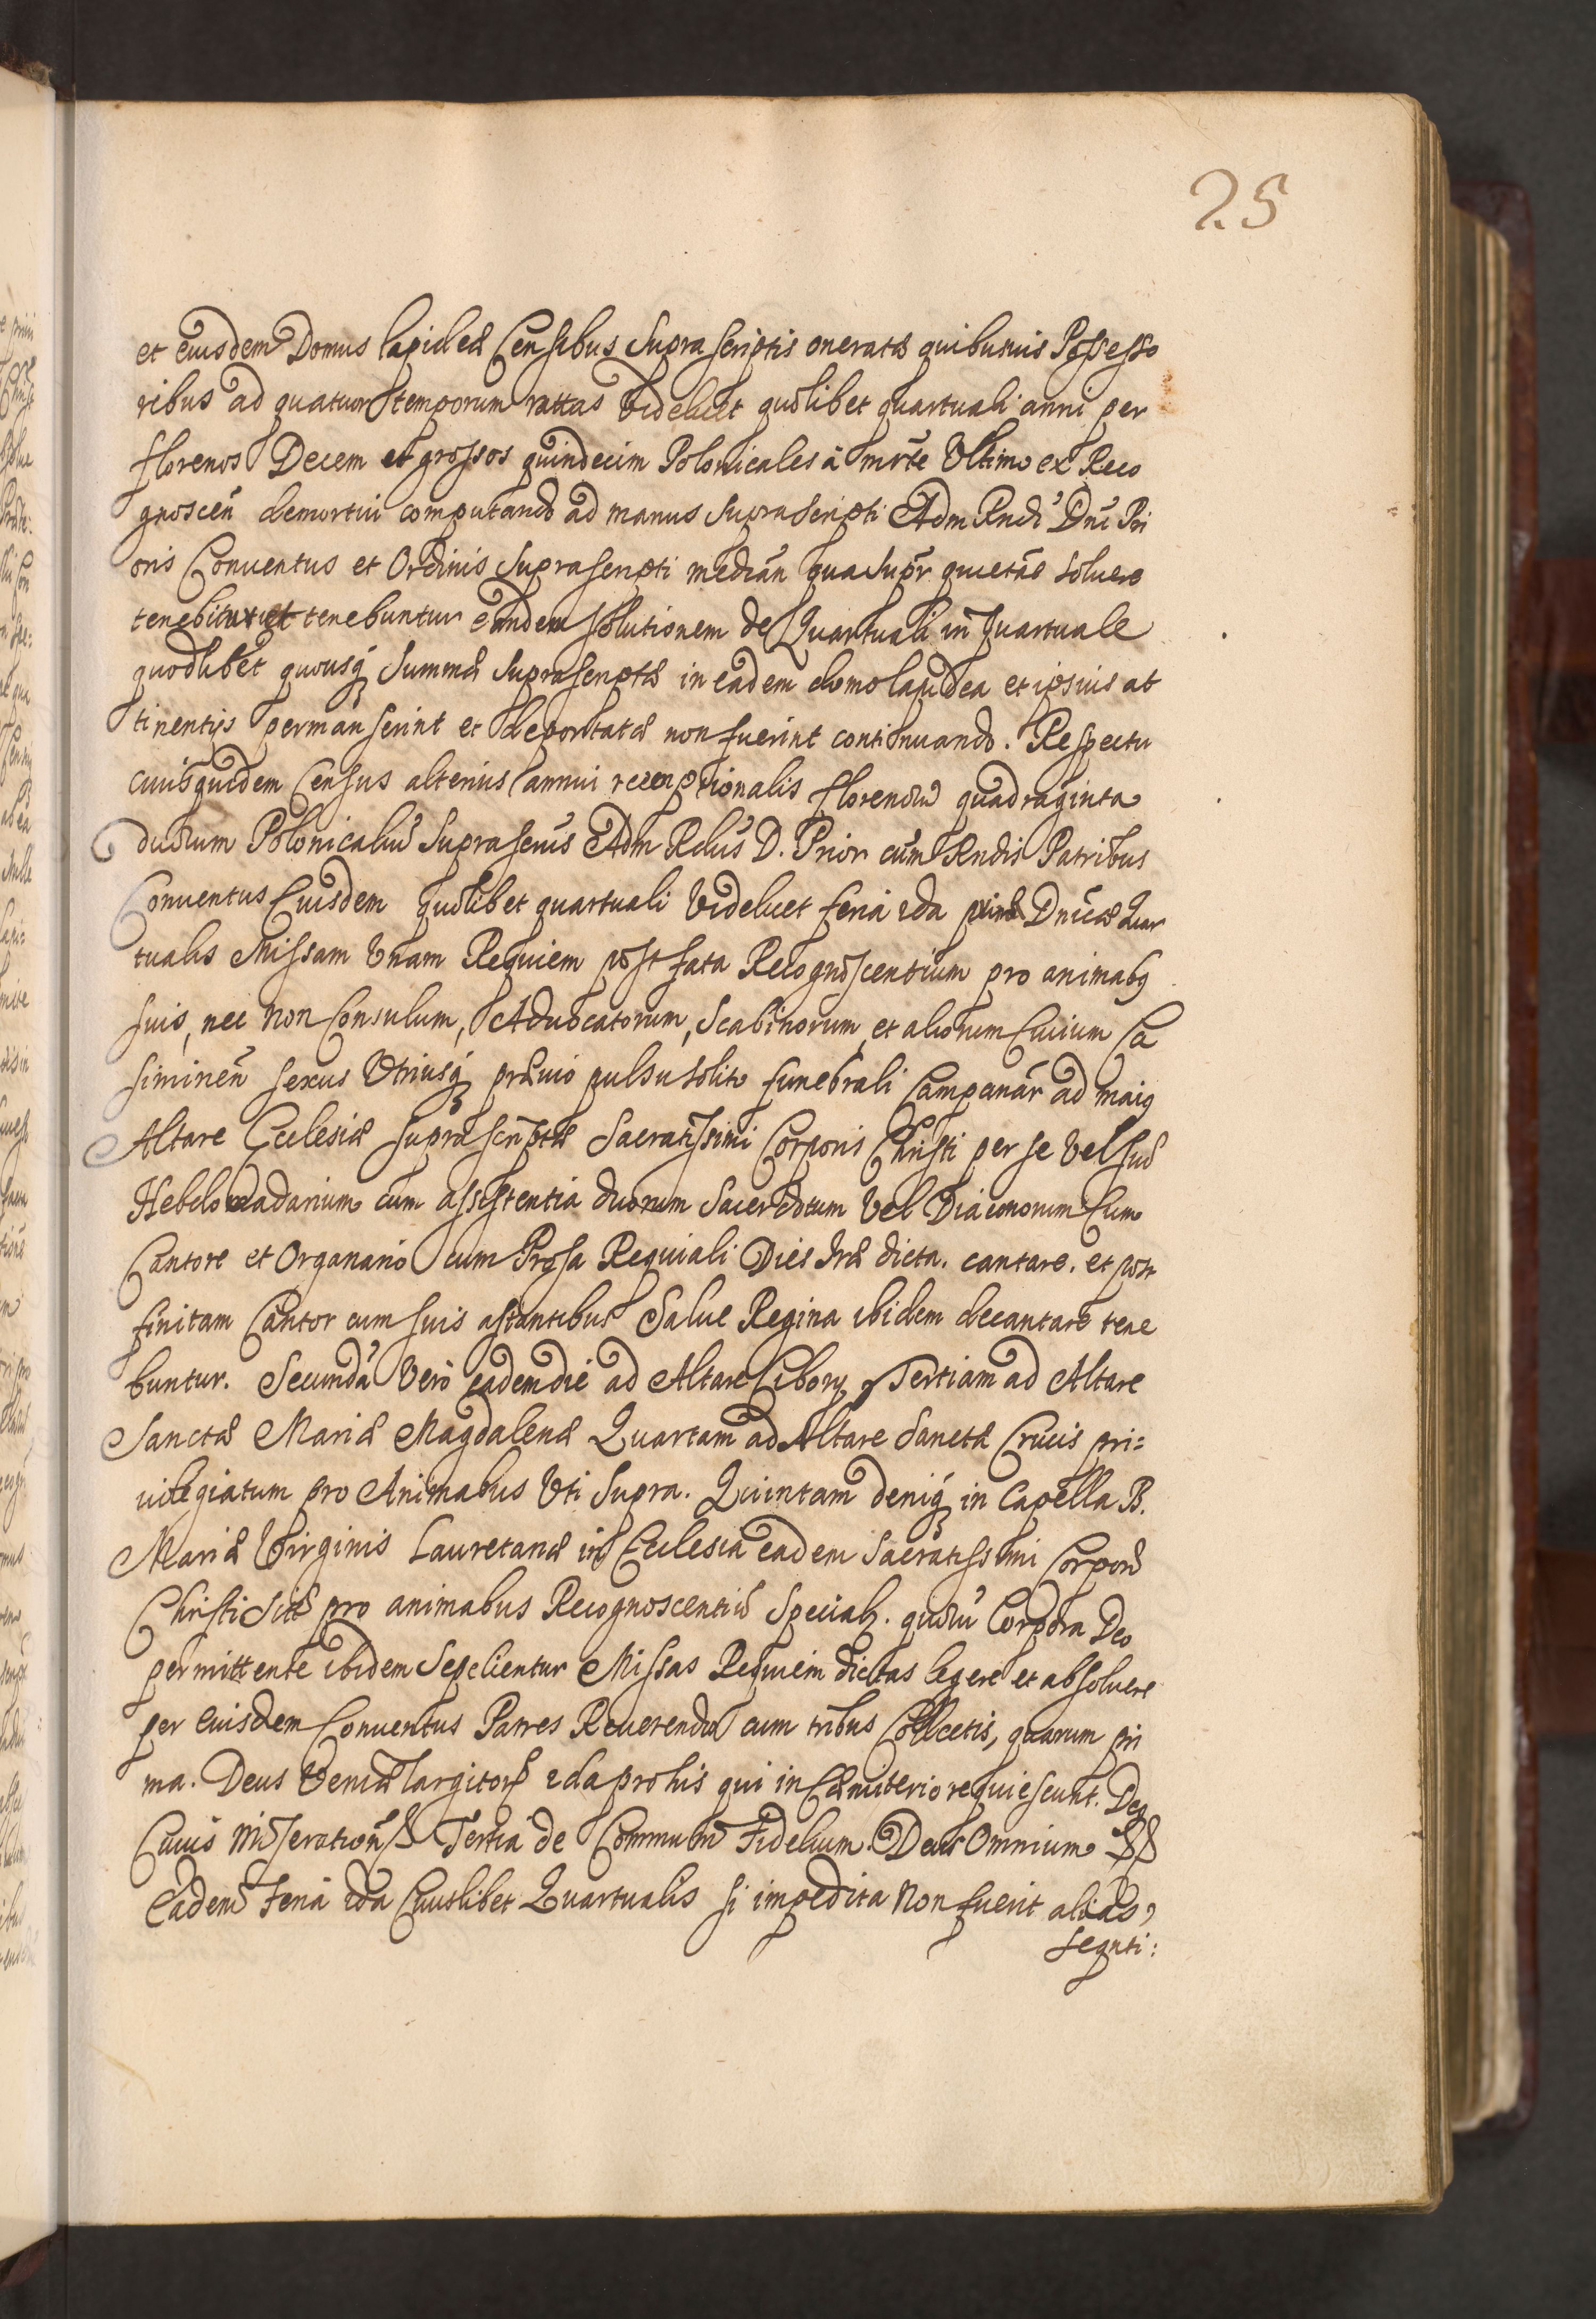 25
et eiusdem Domus lapideæ Censibus Suprascriptis oneratæ quibusuis Possesso
ribus ad quatuor temporum rattas Videlicet quolibet quartuali anni per
florenos Decem et grossos quindecim Polonicales à mrte Vltimo ex Reco
gnoscen̄ demortui computando ad manus Suprascripti Adm Rndi Dni Pri
oris Conuentus et Ordinis Suprascripti medián quasupr quietāe soluere
tenebitur et tenebuntur eandem solutionem de Quartuali in Quartuale
quodlibet quousq́ Summæ Suprascriptæ in eadem domo lapidea et ipsius at
tinentijs permanserint et deportatæ non fuerint continuando. Respectu
cuius quidem Census alterius annui reemptionalis florenorū quadraginta
duorum Polonicaliū Suprascrus Adm Rdus D. Prior cum Rndis Patribus
Conuentus Eiusdem quolibet quartuali Videlicet feria 2da Dnicæ Quar
tualis Missam Vnam Requiem post fata Recognoscentium pro animabꝗ
suis, nec non Consulum, Aduocatorum, Scabinorum, et aliorum Ciuium Ca
siminen̄ sexus Vtriusq́ præuio pulsu solito funebrali Campanár ad maiꝗ
Altare Ecclesiæ suprascriptæ Sacratissimi Corporis Christi per se Vel suū
Hebdomadarium cum assistentia duorum Sacerdotum Vel Diaconorum Cum
Cantore et Organario cum Prosa Requiali Dies Iræ dicta. cantare. et post
finitam Cantor cum suis astantibus Salue Regina ibidem decantare tene
buntur. Secundá Verò eadem die ad Altare Ciborij, Tertiam ad Altare
Sanctæ Mariæ Magdalenæ Quartam ad Altare Sanctæ Crucis pri=
uilegiatum pro Animabus Vti Supra. Quintam deniq́ in Capella B.
Mariæ Virginis Lauretanæ in Ecclesia eadem Sacratissimi Corporis
Christi Sitæ pro animabus Recognoscentiū Specialr. quorū Corpora Deo
permittente ibidem Sepelientur Missas Requiem dictas legere et absoluere
per eiusdem Conuentus Patres Reuerendos cum tribus Collectis, quarum pri
ma. Deus Veniæ largitor 2da pro his qui in Cæmiterio requiescunt. Deꝗ
Cuius Miseratione Tertia de Communi Fidelium. Deus Omnium
Eadem Feria 2da Cuiuslibet Quartualis si impedita non fuerit alias,
sequti: